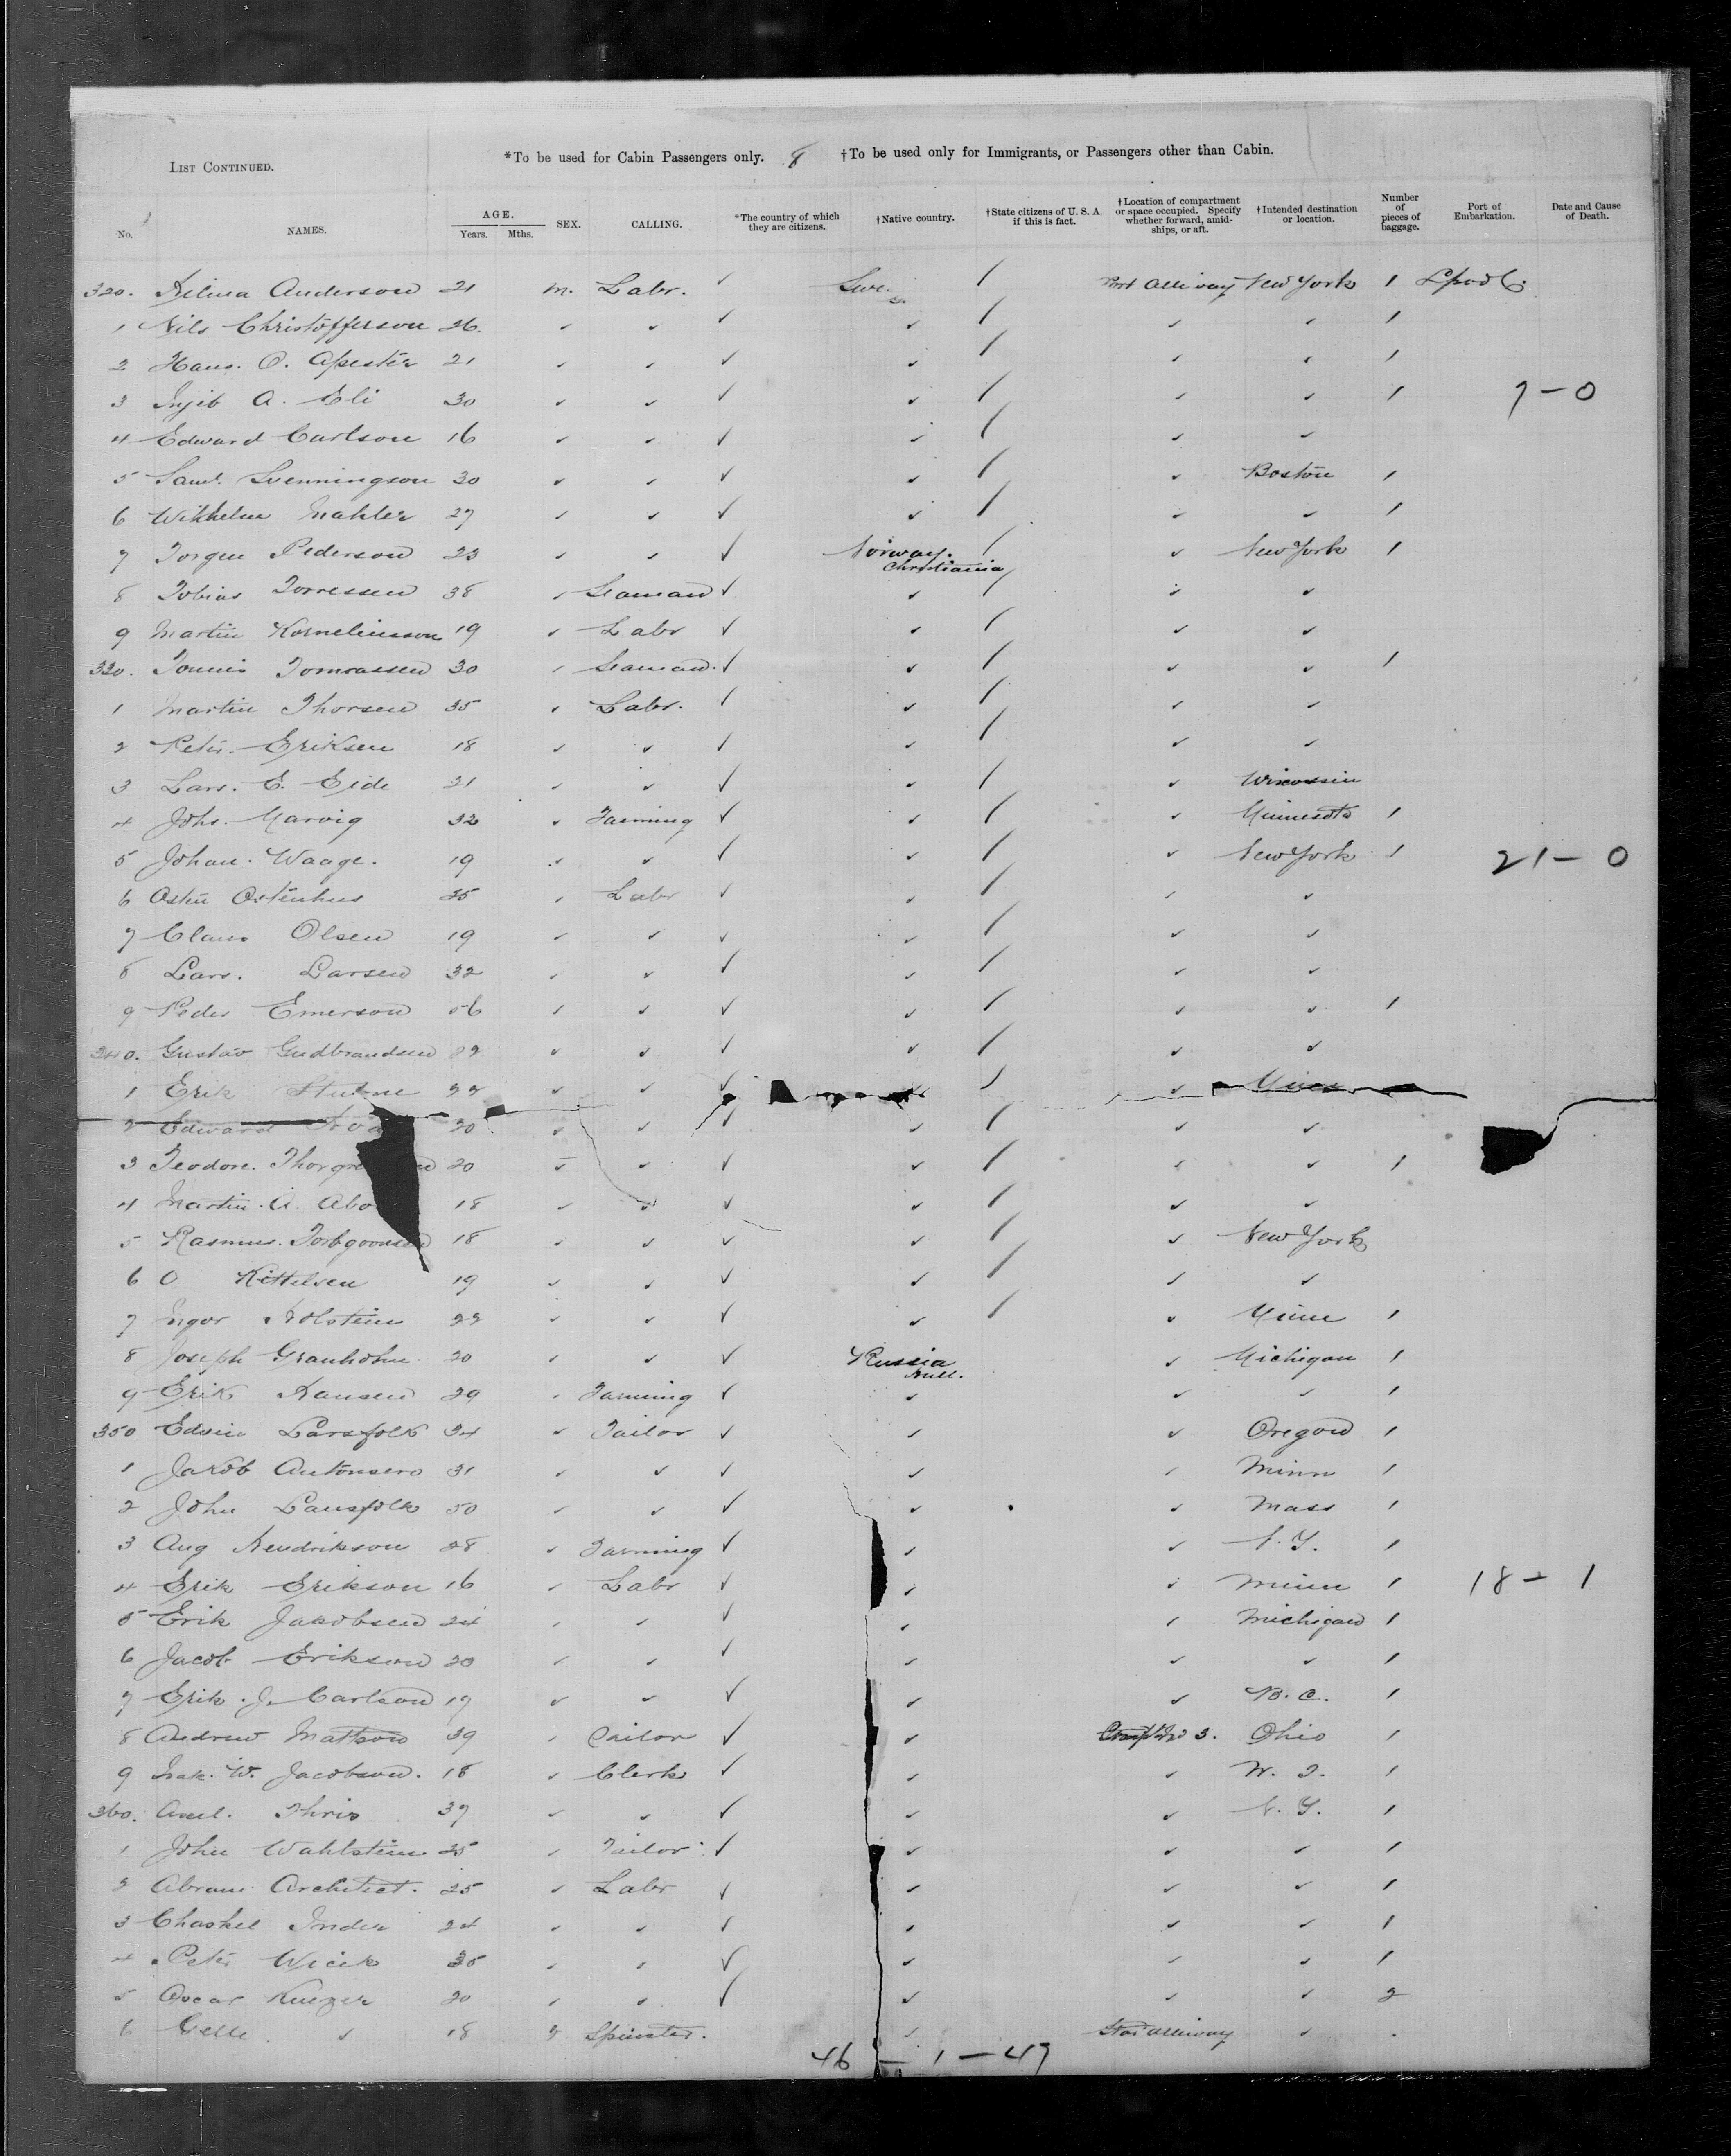 LIST CONTINUED. *To be used for Cabin Passengers only. 8 †To be used only for Immigrants, or Passengers other than Cabin.
No. NAMES. AGE. Years. Mths. SEX. CALLING. *The country of which they are citizens. †Native country. †State citizens of U. S. A. if this is fact. †Location of compartment or space occupied. Specify whether forward, amidships, or aft. †Intended destination or location. Number of pieces of baggage. Port of Embarkation. Date and Cause of Death.
320. Anderson 21 m. Labr. ✓ Swe. / Port Alleiway New York 1 Lpool
1 Nils Christofferson 26 ✓ ✓ ✓ ✓ / ✓ ✓ 1
2 Hans. O. 21 ✓ ✓ ✓ ✓ / ✓ ✓ 1
3 A. Eli 30 ✓ ✓ ✓ ✓ / ✓ ✓ 1 7 — 0
4 Edward Carlson 16 ✓ ✓ ✓ ✓ / ✓ ✓
5 Saml. Svenningson 30 ✓ ✓ ✓ ✓ / ✓ Boston 1
6 Wilhelm Mahler 27 ✓ ✓ ✓ ✓ / ✓ ✓ 1
7 Torger Pederson 23 ✓ ✓ ✓ Norway. Christiania / ✓ New York 1
8 Tobias Torressen 38 ✓ Seaman ✓ ✓ / ✓ ✓
9 Martin Korneliusson 19 ✓ Labr ✓ ✓ / ✓ ✓
330. 30 ✓ Seaman. ✓ ✓ / ✓ ✓ 1
1 Martin Thorsen 35 ✓ Labr. ✓ ✓ / ✓ ✓
2 Peter. Eriksen 18 ✓ ✓ ✓ ✓ / ✓ ✓
3 Lars. E. Eide 21 ✓ ✓ ✓ ✓ / ✓ Wisconsin
4 Johs. Marvig 32 ✓ Farming ✓ ✓ / ✓ Minnesota 1
5 Johan. Waage. 19 ✓ ✓ ✓ ✓ / ✓ New York 1 21 — 0
6 Ostenhus 25 ✓ Labr ✓ ✓ / ✓ ✓
7 Claus Olsen 19 ✓ ✓ ✓ ✓ / ✓ ✓
8 Lars. Larsen 32 ✓ ✓ ✓ ✓ / ✓ ✓
9 Peder Emerson 56 ✓ ✓ ✓ ✓ / ✓ ✓ 1
340. Gustav Gudbrandsen 22 ✓ ✓ ✓ ✓ / ✓ ✓
1 Erik 22 ✓ ✓ ✓ / ✓
2 Edward 20 ✓ ✓ ✓ ✓ / ✓ ✓
3 Teodore. 20 ✓ ✓ ✓ ✓ / ✓ ✓ 1
4 Martin. A. 18 ✓ ✓ ✓ ✓ / ✓ ✓
5 Rasmus. 18 ✓ ✓ ✓ ✓ / ✓ New York
6 O Kittelsen 19 ✓ ✓ ✓ ✓ / ✓ ✓
7 Holstein 22 ✓ ✓ ✓ ✓ / ✓ Minn 1
8 Joseph Granholm. 20 ✓ ✓ ✓ Russia Hull. ✓ Michigan 1
9 Erik Hansen 29 ✓ Farming ✓ ✓ ✓ ✓ 1
350 Edwin Larsfolk 34 ✓ Tailor ✓ ✓ ✓ Oregon 1
1 Jakob Antonsen 31 ✓ ✓ ✓ ✓ ✓ Minn 1
2 John 50 ✓ ✓ ✓ ✓ ✓ Mass 1
3 Aug Hendrikson 28 ✓ Farming ✓ ✓ ✓ N. Y. 1
4 Erik Erikson 16 ✓ Labr ✓ ✓ ✓ Minn 1 18 — 1
5 Erik Jakobsen 24 ✓ ✓ ✓ ✓ ✓ Michigan 1
6 Jacob Erikson 20 ✓ ✓ ✓ ✓ ✓ ✓ 1
7 Erik. J. Carlson 19 ✓ ✓ ✓ ✓ ✓ B. C. 1
8 Andrew Mattson 39 ✓ ✓ ✓ 3. Ohio 1
9 Isak. W. Jacobson. 18 ✓ Clerk ✓ ✓ ✓ W. T. 1
360. 37 ✓ ✓ ✓ ✓ ✓ N. Y. 1
1 John Wahlstein 25 ✓ Tailor ✓ ✓ ✓ ✓ 1
2 Abram Architect. 25 ✓ Labr ✓ ✓ ✓ ✓ 1
3 Chaskel 24 ✓ ✓ ✓ ✓ ✓ ✓ 1
4 Peter 35 ✓ ✓ ✓ ✓ ✓ ✓ 1
5 Oscar 20 ✓ ✓ ✓ ✓ ✓ ✓ 2
6 ✓ 18 Spinster. ✓ Star alleiway ✓
46 — 1 — 47